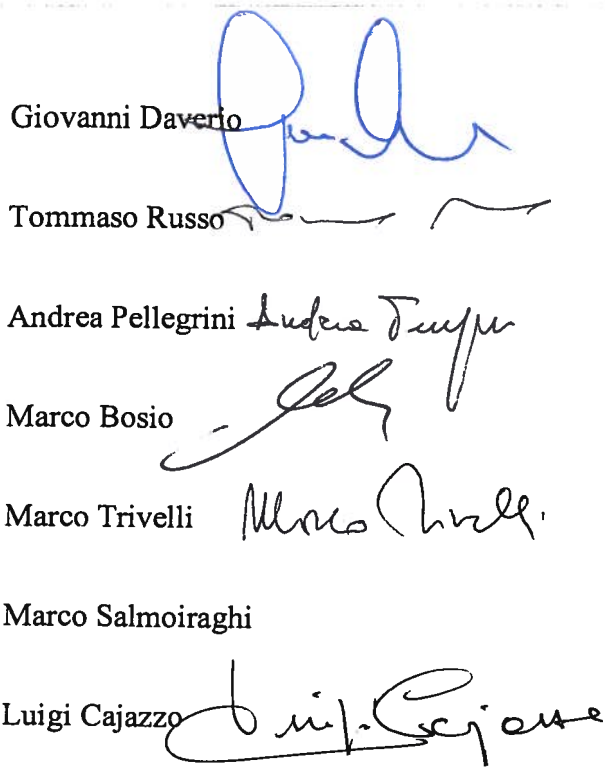 Giovanni Daverio
Tommaso Russo
Andrea Pellegrini Andrea
Marco Bosio
Marco Trivelli Marco Trivelli
Marco Salmoiraghi
Luigi Cajazzo Luigi Cajazzo